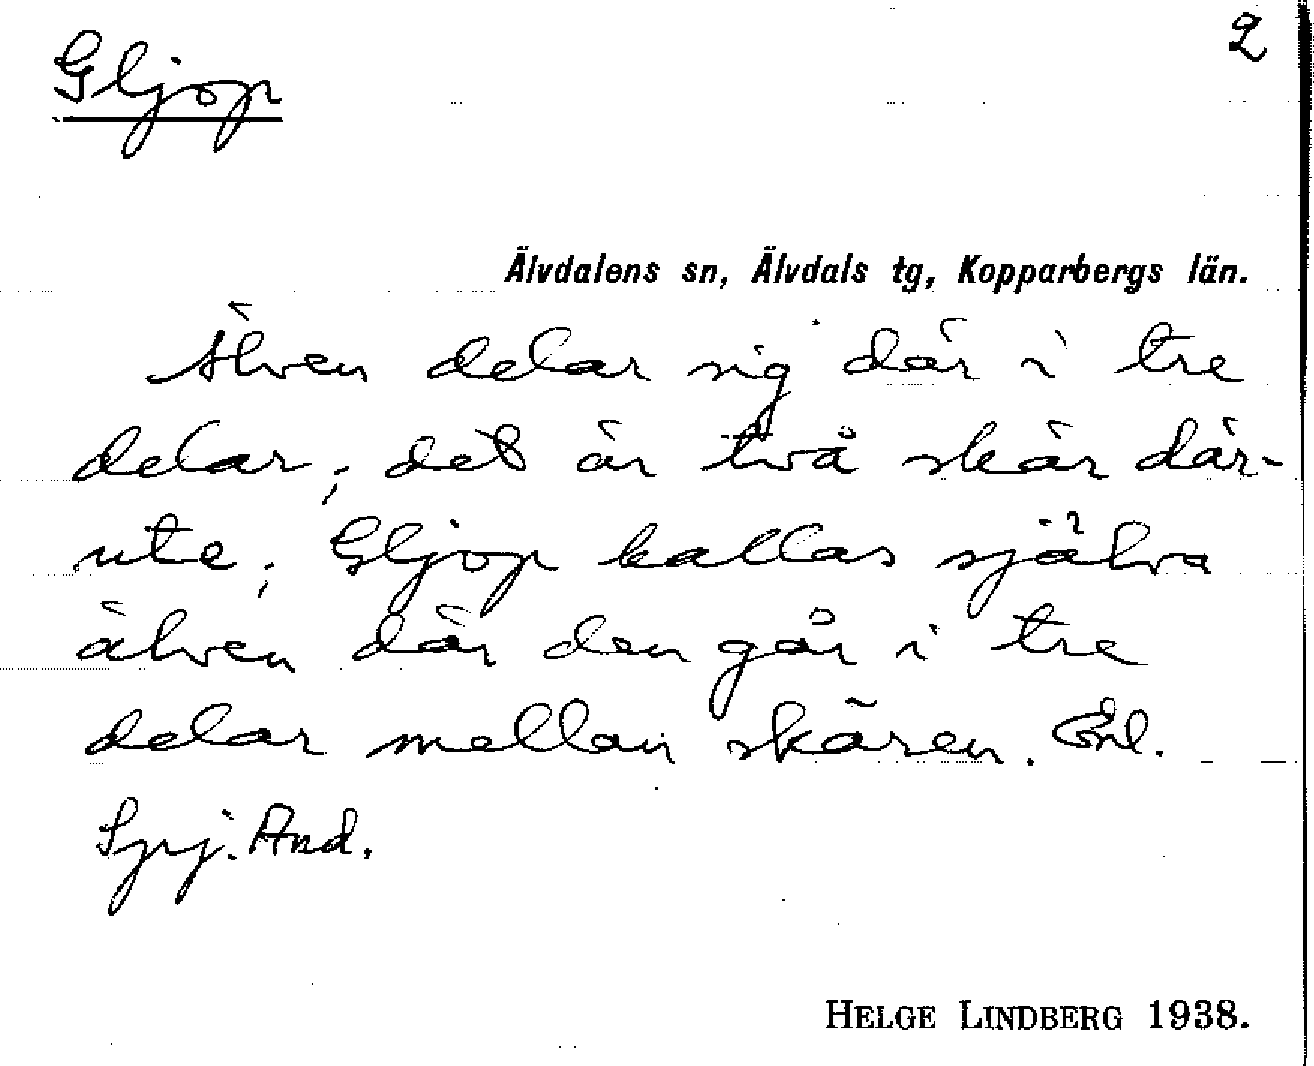 2
Gljop
Älvdalens sn, Älvdals tg, Kopparbergs län.
Älven delar sig där i tre
delar; det är två skär där-
ute; Gljop kallas själva
älven där den går i tre
delar mellan skären. Enl.
And.
HELGE LINDBERG 1938.